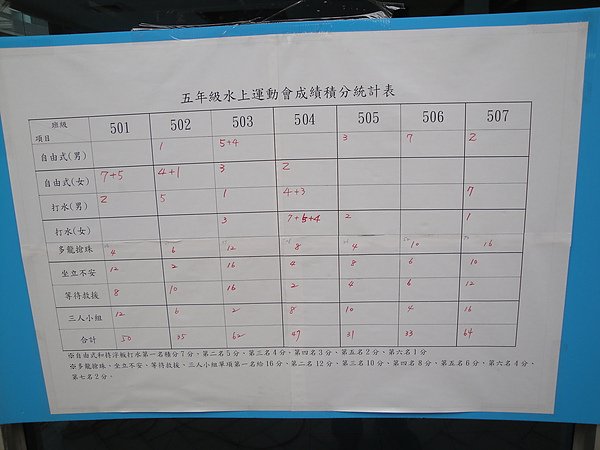 五年級水上運動會成績積分統計表
班級 501 502 503 504 505 506 507
項目
自由式(男) 1 5+4 3 7 2
自由式(女) 7+5 4+1 3 2
打水(男) 2 5 1 4+3 7
打水(女) 3 7+5+4 2 1
多龍搶珠 4 6 12 8 4 10 16
坐立不安 12 2 16 4 8 6 10
等待救援 8 10 16 2 4 6 12
三人小組 12 6 2 8 10 4 16
合計 50 35 62 47 31 33 64
※自由式和持浮板打水第一名積分7分、第二名5分、第三名4分、第四名3分、第五名2分、第六名1分
※多龍搶珠、坐立不安、等待救援、三人小組單項第一名給16分、第二名12分、第三名10分、第四名8分、第五名6分、第六名4分、
第七名2分。